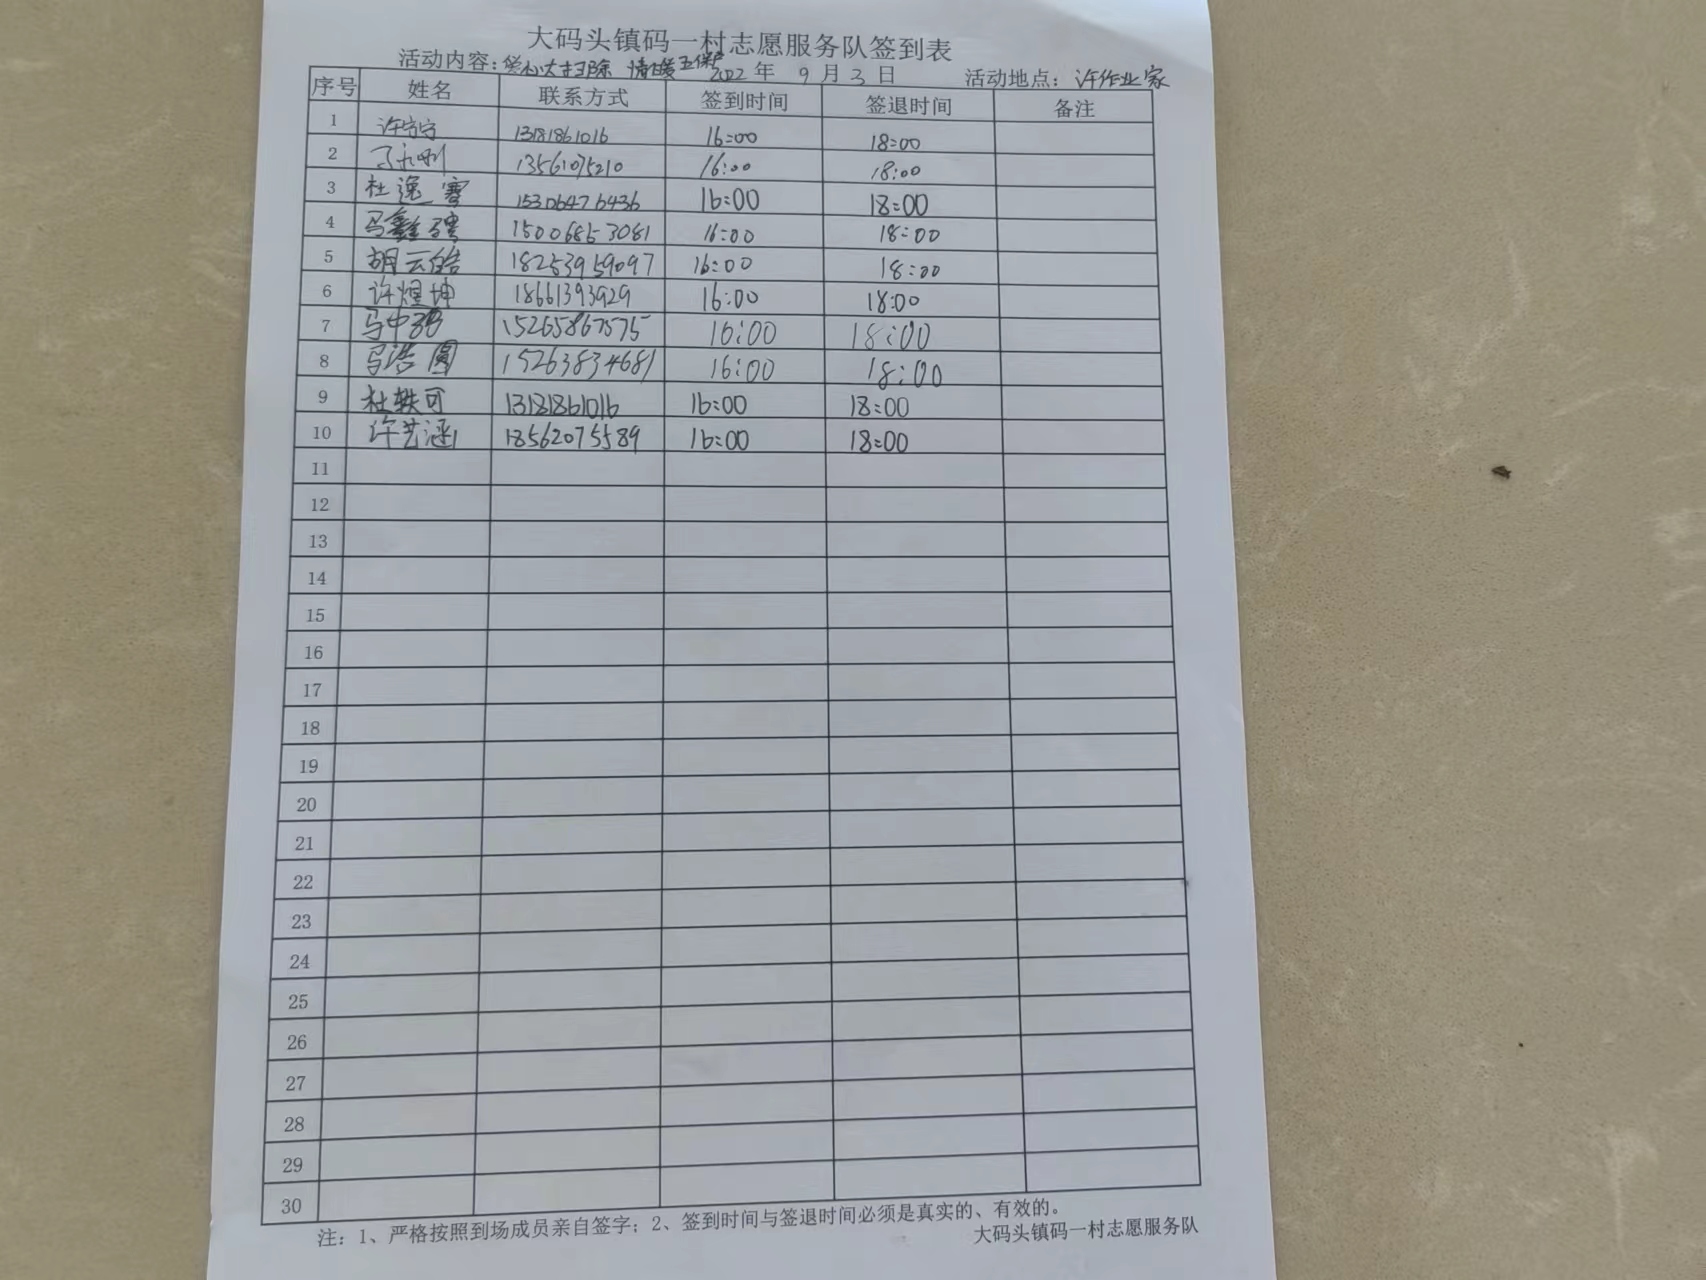 大码头镇码一村志愿服务队签到表
活动内容：爱心大扫除 情暖五保户 2022年 9月3日 活动地点：许作业家
序号 姓名 联系方式 签到时间 签退时间 备注
1 许宁宁 13181861016 16:00 18:00
2 马永利 13561075210 16:00 18:00
3 杜逸骞 15306476436 16:00 18:00
4 马鑫 15006853081 16:00 18:00
5 胡云皓 18253959097 16:00 18:00
6 许煜坤 18661393929 16:00 18:00
7 马中 15265867575 16:00 18:00
8 马浩圆 15263834681 16:00 18:00
9 杜轶可 13181861016 16:00 18:00
10 许艺涵 18562075589 16:00 18:00
11
12
13
14
15
16
17
18
19
20
21
22
23
24
25
26
27
28
29
30
注：1、严格按照到场成员亲自签字；2、签到时间与签退时间必须是真实的、有效的。
大码头镇码一村志愿服务队